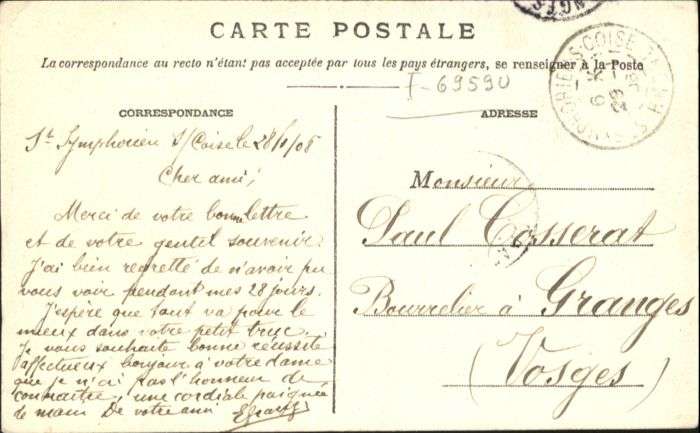 CARTE POSTALE
La correspondance au recto n'étant pas acceptée par tous les pays étrangers, se renseigner à la Poste
I-69590
CORRESPONDANCE
ADRESSE
St Symphorien s/Coise le 28/1/08
Cher ami,
Merci de votre bonne lettre
et de votre gentil souvenir.
J'ai bien regretté de n'avoir pu
vous voir pendant mes 28 jours.
J'espère que tout va pour le
mieux dans votre petit truc.
Je vous souhaite bonne réussite
affectueux bonjour à votre dame
que je n'ai pas l'honneur de
connaitre, une cordiale poignée
de main De votre ami
Monsieur
Paul Cosserat
Bourrelier à Granges
(Vosges)